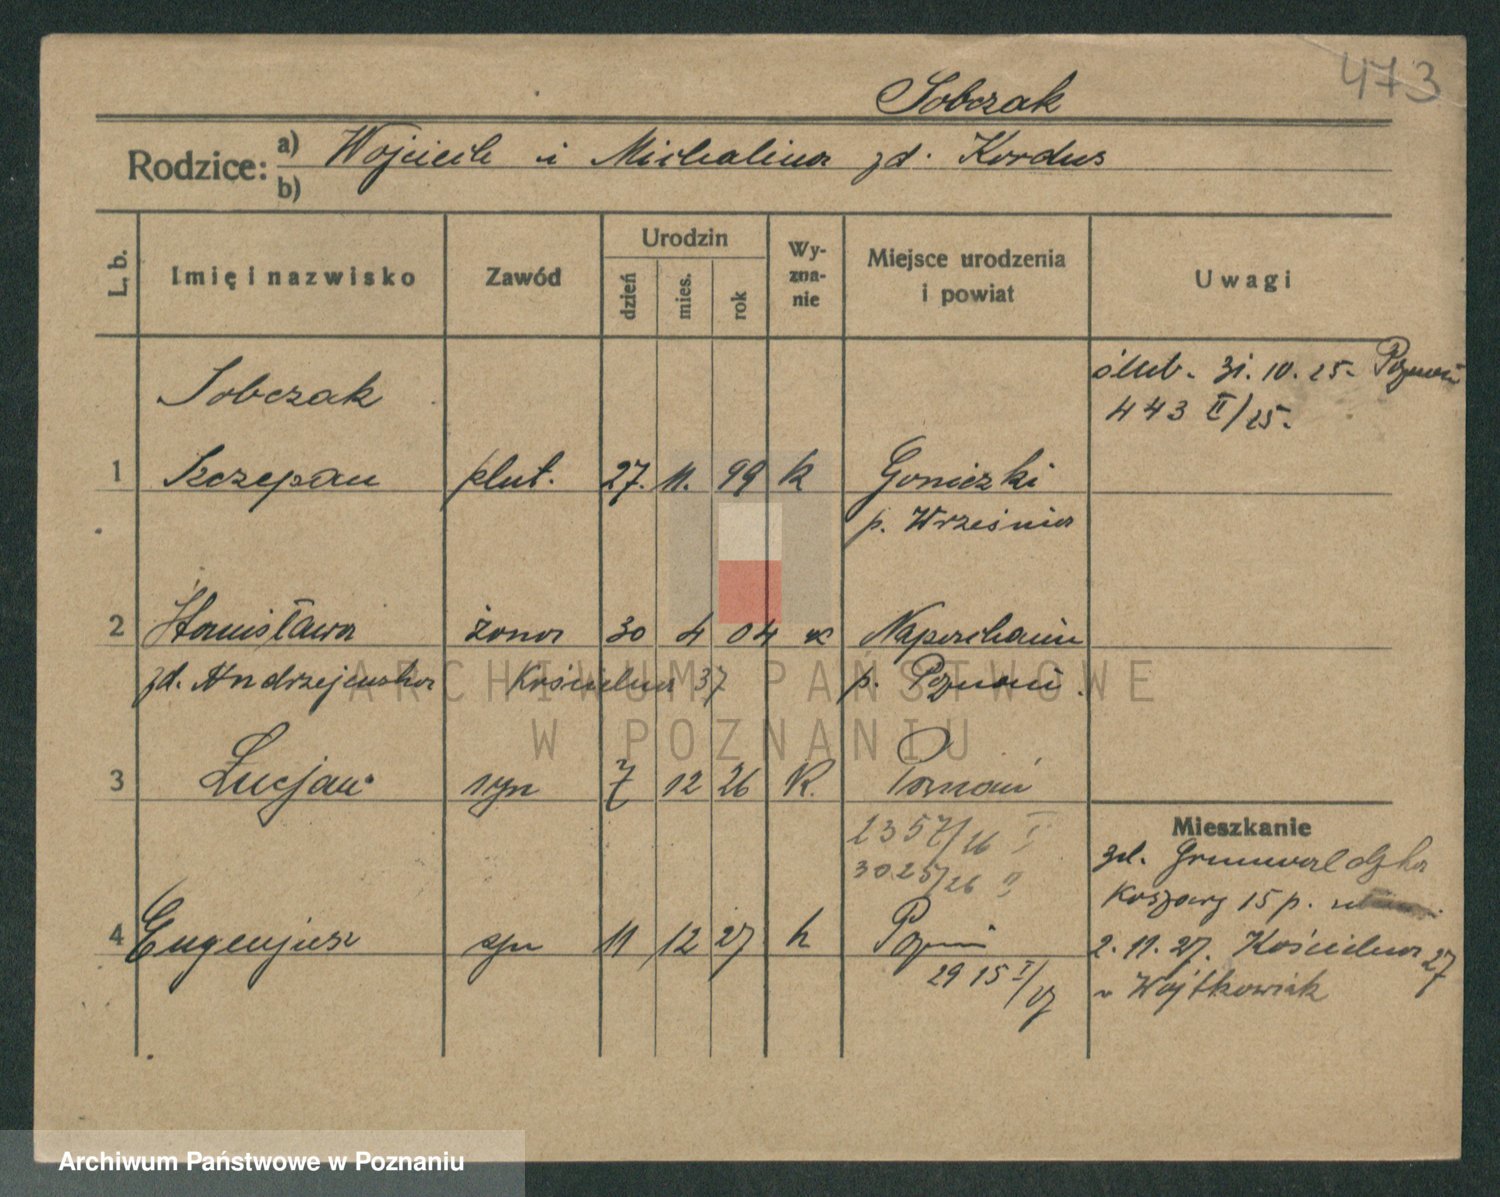 473
Sobczak
Rodzice: a) Wojciech i Michalina zd. Kordus
b)
L. b. Imię i nazwisko Zawód Urodzin dzień mies. rok Wy-zna-nie Miejsce urodzenia i powiat Uwagi
ślub. 31. 10. 25. Poznań
443 II/25.
Sobczak
1 Szczepan plut. 27. 11. 99 k Goniczki
p. Września
2 Stanisława żona 30 4 04 k Napachanie
zd. Andrzejewska Kościelna 37 p. Poznań.
3 Lucjan syn 7 12 26 k. Poznań
2357/26 I
3025/26 II
Mieszkanie
zd. Grunwaldzka
Koszary 15 p.
4 Eugenjusz syn 11 12 27 k Poznań
2915 I/27
2. 11. 27. Kościelna 27
u Wojtkowiak
ARCHIWUM PAŃSTWOWE
W POZNANIU
Archiwum Państwowe w Poznaniu